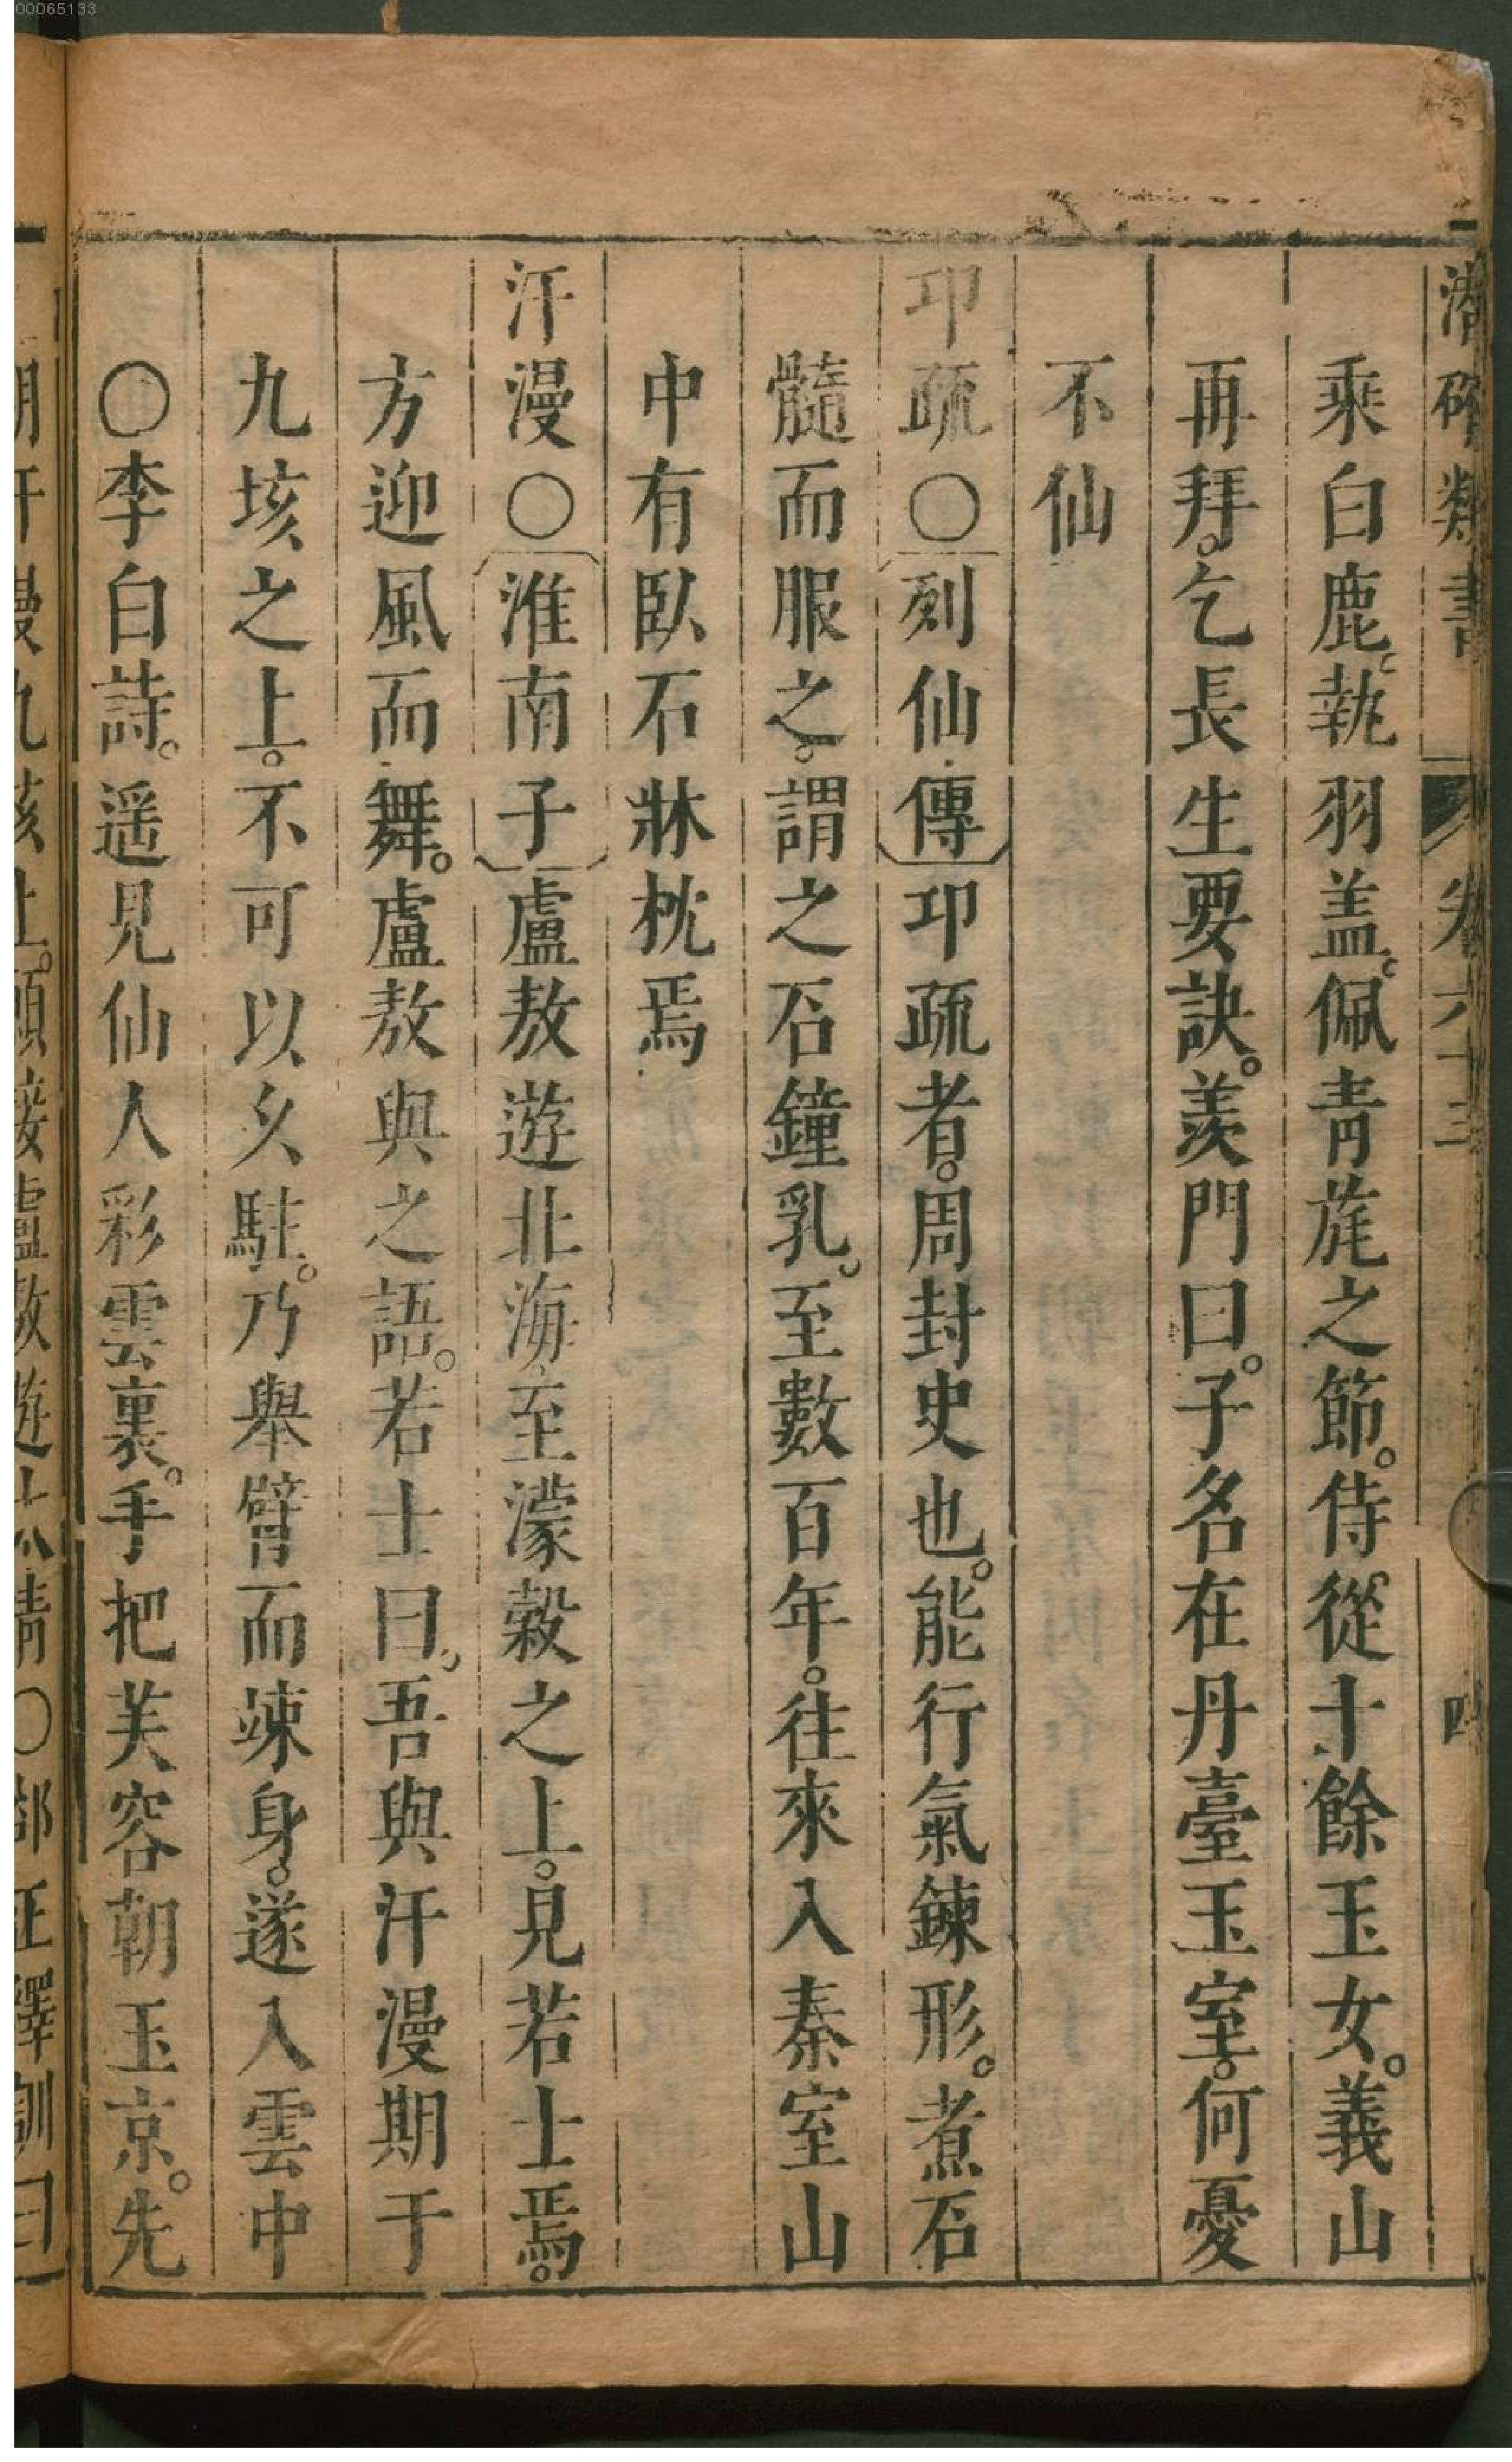 00065133
潜確類書 卷六十三 四
乘白鹿。執羽盖。佩青旄之節。侍從十餘玉女。義山
再拜。乞長生要訣。羨門曰。子名在丹臺玉室。何憂
不仙
卭疏○列仙傳卭疏者。周封史也。能行氣鍊形。煮石
髓而服之。謂之石鐘乳。至數百年。往來入秦室山
中有臥石牀枕焉
汗漫○淮南子盧敖遊北海至濛榖之上。見若士焉。
方迎風而舞。盧敖與之語。若士曰。吾與汗漫期于
九垓之上。不可以久駐。乃舉臂而竦身。遂入雲中
○李白詩。遥見仙人彩雲裏。手把芙容朝玉京。先
期汗漫九垓上。願接盧敖遊太清○郄正釋訓曰